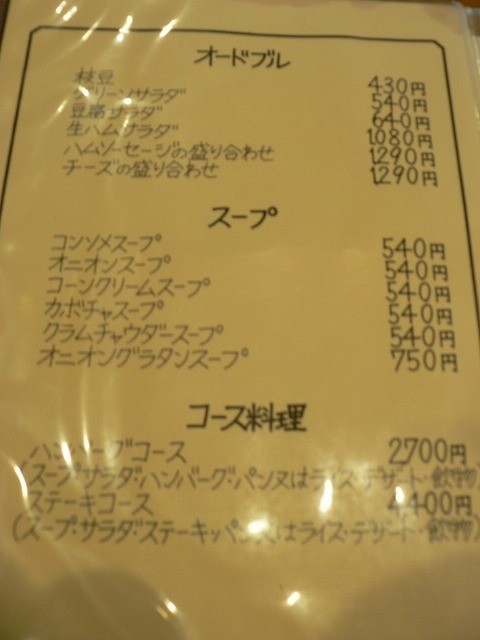 オードブル
枝豆 430円
グリーンサラダ 540円
豆腐サラダ 640円
生ハムサラダ 1,080円
ハムソーセージの盛り合わせ 1,290円
チーズの盛り合わせ 1,290円
スープ
コンソメスープ 540円
オニオンスープ 540円
コーンクリームスープ 540円
カボチャスープ 540円
クラムチャウダースープ 540円
オニオングラタンスープ 750円
コース料理
ハンバーグコース 2700円
(スープ・サラダ・ハンバーグ・パン又はライス・デザート・飲物)
ステーキコース 4400円
(スープ・サラダ・ステーキ・パン又はライス・デザート・飲物)